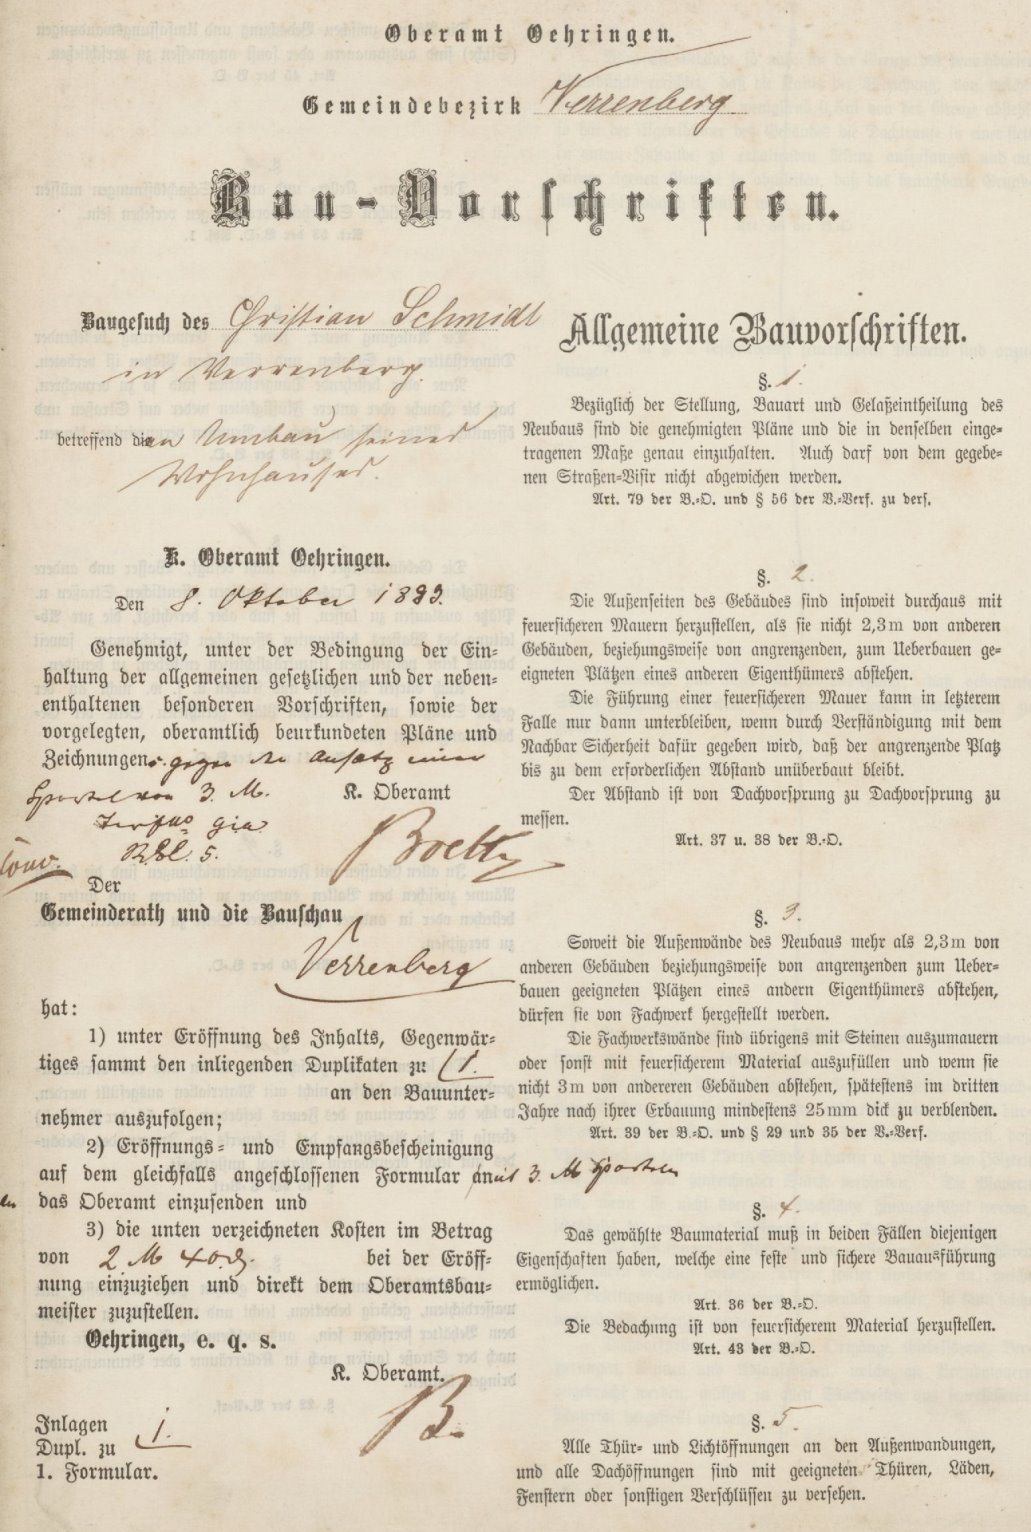 Oberamt Oehringen.
Gemeindebezirk Verrenberg
Bau-Vorschriften.
Baugesuch des Christian Schmidt
in Verrenberg.
betreffend die en Umbau seines
Wohnhauses.
K. Oberamt Oehringen.
Den 8. Oktober 1883.
Genehmigt, unter der Bedingung der Ein-
haltung der allgemeinen gesetzlichen und der neben-
enthaltenen besonderen Vorschriften, sowie der
vorgelegten, oberamtlich beurkundeten Pläne und
Zeichnungen. gegen den Ansatz einer
Sportel von 3. M.
K. Oberamt
5.
Der
Gemeinderath und die Bauschau
Verrenberg
hat:
1) unter Eröffnung des Inhalts, Gegenwär-
tiges sammt den inliegenden Duplikaten zu 1.
an den Bauunter-
nehmer auszufolgen;
2) Eröffnungs- und Empfangsbescheinigung
auf dem gleichfalls angeschlossenen Formular an mit 3. M Sporteln
das Oberamt einzusenden und
3) die unten verzeichneten Kosten im Betrag
von 2 M 40 bei der Eröff-
nung einzuziehen und direkt dem Oberamtsbau-
meister zuzustellen.
Oehringen, e. q. s.
K. Oberamt.
B.
Inlagen
Dupl. zu 1.
1. Formular.
Allgemeine Bauvorschriften.
§. 1.
Bezüglich der Stellung, Bauart und Gelaßeintheilung des
Neubaus sind die genehmigten Pläne und die in denselben einge-
tragenen Maße genau einzuhalten. Auch darf von dem gegebe-
nen Straßen-Visir nicht abgewichen werden.
Art. 79 der B.-O. und § 56 der V.-Verf. zu ders.
§. 2.
Die Außenseiten des Gebäudes sind insoweit durchaus mit
feuersicheren Mauern herzustellen, als sie nicht 2,3m von anderen
Gebäuden, beziehungsweise von angrenzenden, zum Ueberbauen ge-
eigneten Plätzen eines anderen Eigenthümers abstehen.
Die Führung einer feuersicheren Mauer kann in letzterem
Falle nur dann unterbleiben, wenn durch Verständigung mit dem
Nachbar Sicherheit dafür gegeben wird, daß der angrenzende Platz
bis zu dem erforderlichen Abstand unüberbaut bleibt.
Der Abstand ist von Dachvorsprung zu Dachvorsprung zu
messen.
Art. 37 u. 38 der B.-O.
§. 3.
Soweit die Außenwände des Neubaus mehr als 2,3m von
anderen Gebäuden beziehungsweise von angrenzenden zum Ueber-
bauen geeigneten Plätzen eines andern Eigenthümers abstehen,
dürfen sie von Fachwerk hergestellt werden.
Die Fachwerkswände sind übrigens mit Steinen auszumauern
oder sonst mit feuersicherem Material auszufüllen und wenn sie
nicht 3m von andereren Gebäuden abstehen, spätestens im dritten
Jahre nach ihrer Erbauung mindestens 25mm dick zu verblenden.
Art. 39 der B.-O. und § 29 und 35 der V.-Verf.
§. 4.
Das gewählte Baumaterial muß in beiden Fällen diejenigen
Eigenschaften haben, welche eine feste und sichere Bauausführung
ermöglichen.
Art. 36 der B.-O.
Die Bedachung ist von feuersicherem Material herzustellen.
Art. 43 der B.-O.
§. 5.
Alle Thür- und Lichtöffnungen an den Außenwandungen,
und alle Dachöffnungen sind mit geeigneten Thüren, Läden,
Fenstern oder sonstigen Verschlüssen zu versehen.